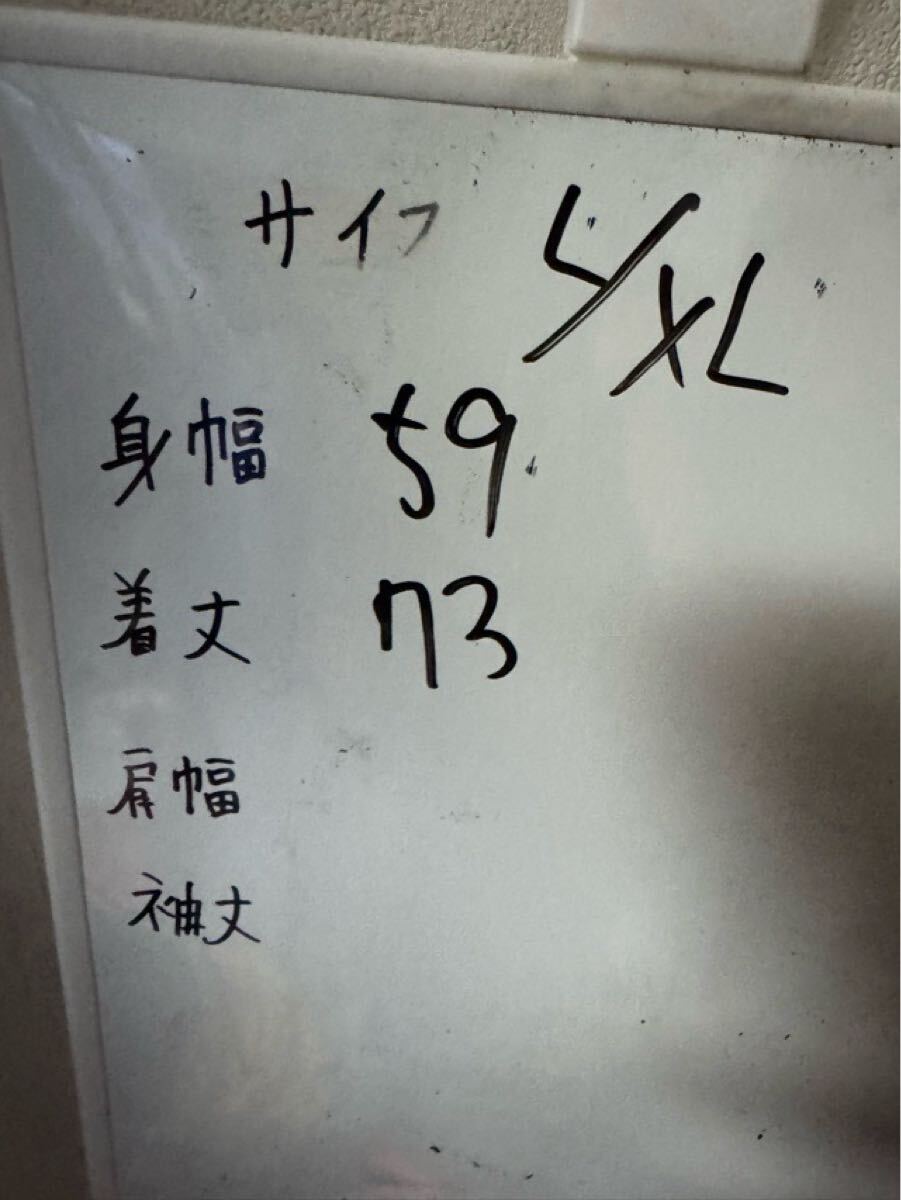 サイズ L/XL
身幅 59
着丈 73
肩幅
袖丈